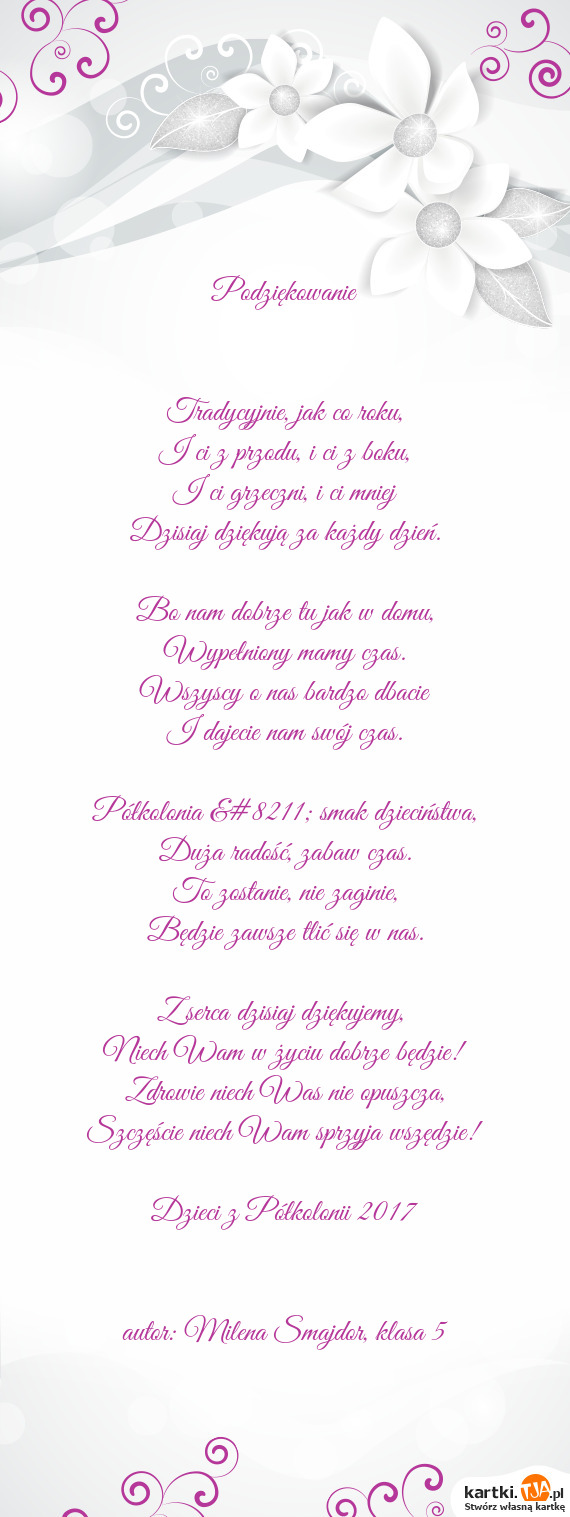 Podziękowanie
Tradycyjnie, jak co roku,
I ci z przodu, i ci z boku,
I ci grzeczni, i ci mniej
Dzisiaj dziękują za każdy dzień.
Bo nam dobrze tu jak w domu,
Wypełniony mamy czas.
Wszyscy o nas bardzo dbacie
I dajecie nam swój czas.
Półkolonia &#8211; smak dzieciństwa,
Duża radość, zabaw czas.
To zostanie, nie zaginie,
Będzie zawsze tlić się w nas.
Z serca dzisiaj dziękujemy,
Niech Wam w życiu dobrze będzie!
Zdrowie niech Was nie opuszcza,
Szczęście niech Wam sprzyja wszędzie!
Dzieci z Półkolonii 2017
autor: Milena Smajdor, klasa 5
kartki.TJA.pl
Stwórz własną kartkę